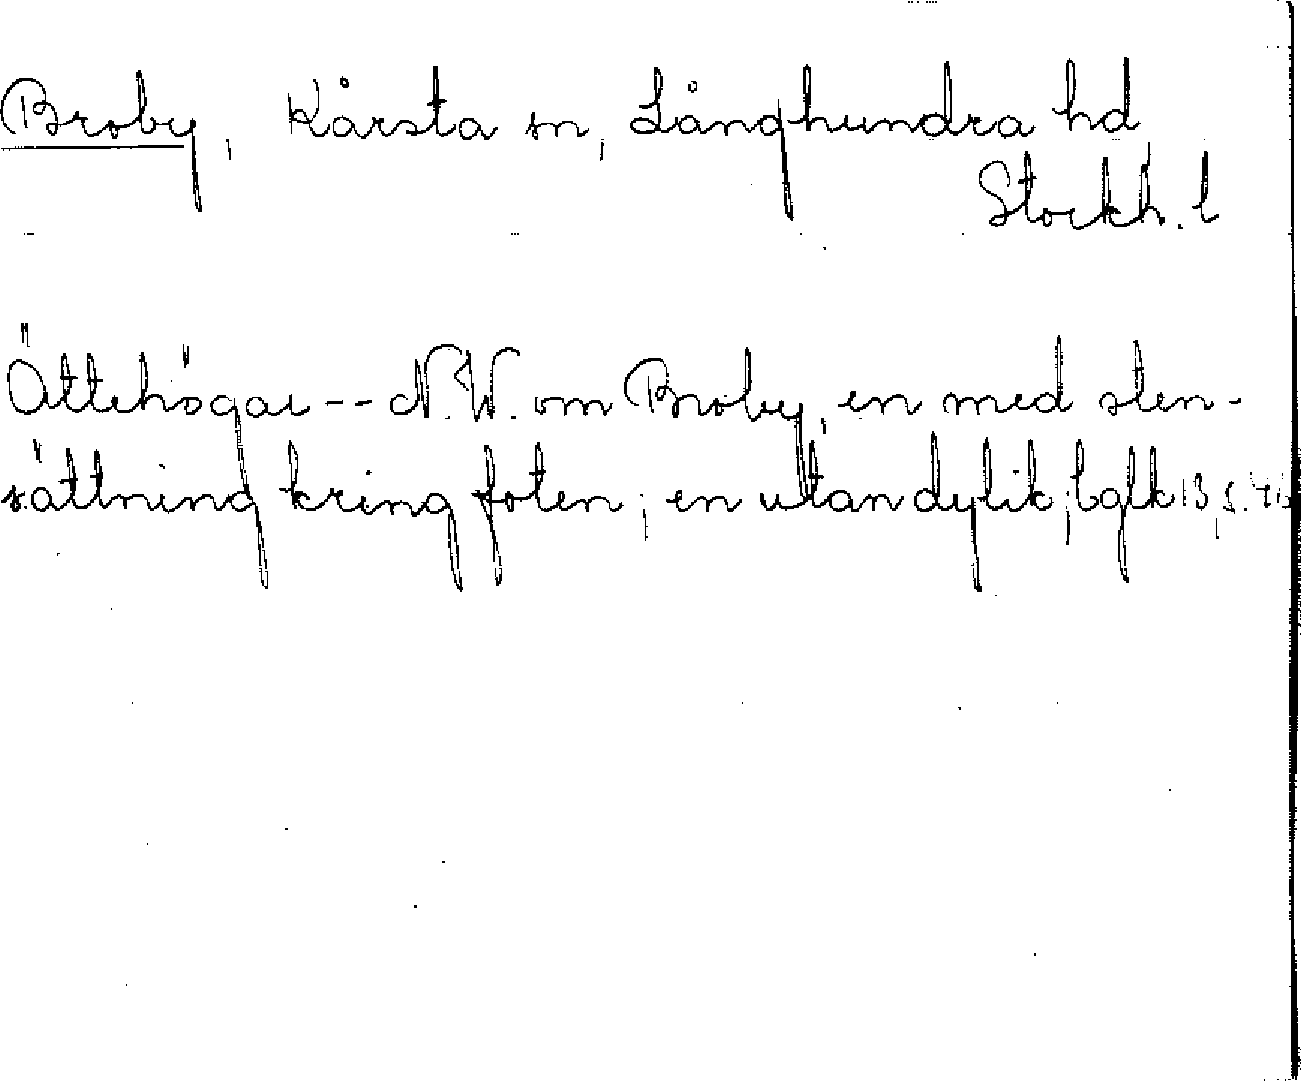 Broby, Kårsta sn, Långhundra hd
Stockh. l
Ättehögar -- N.W. om Broby, en med sten-
sättning kring foten; en utan dylik; bglk 13, s. 46